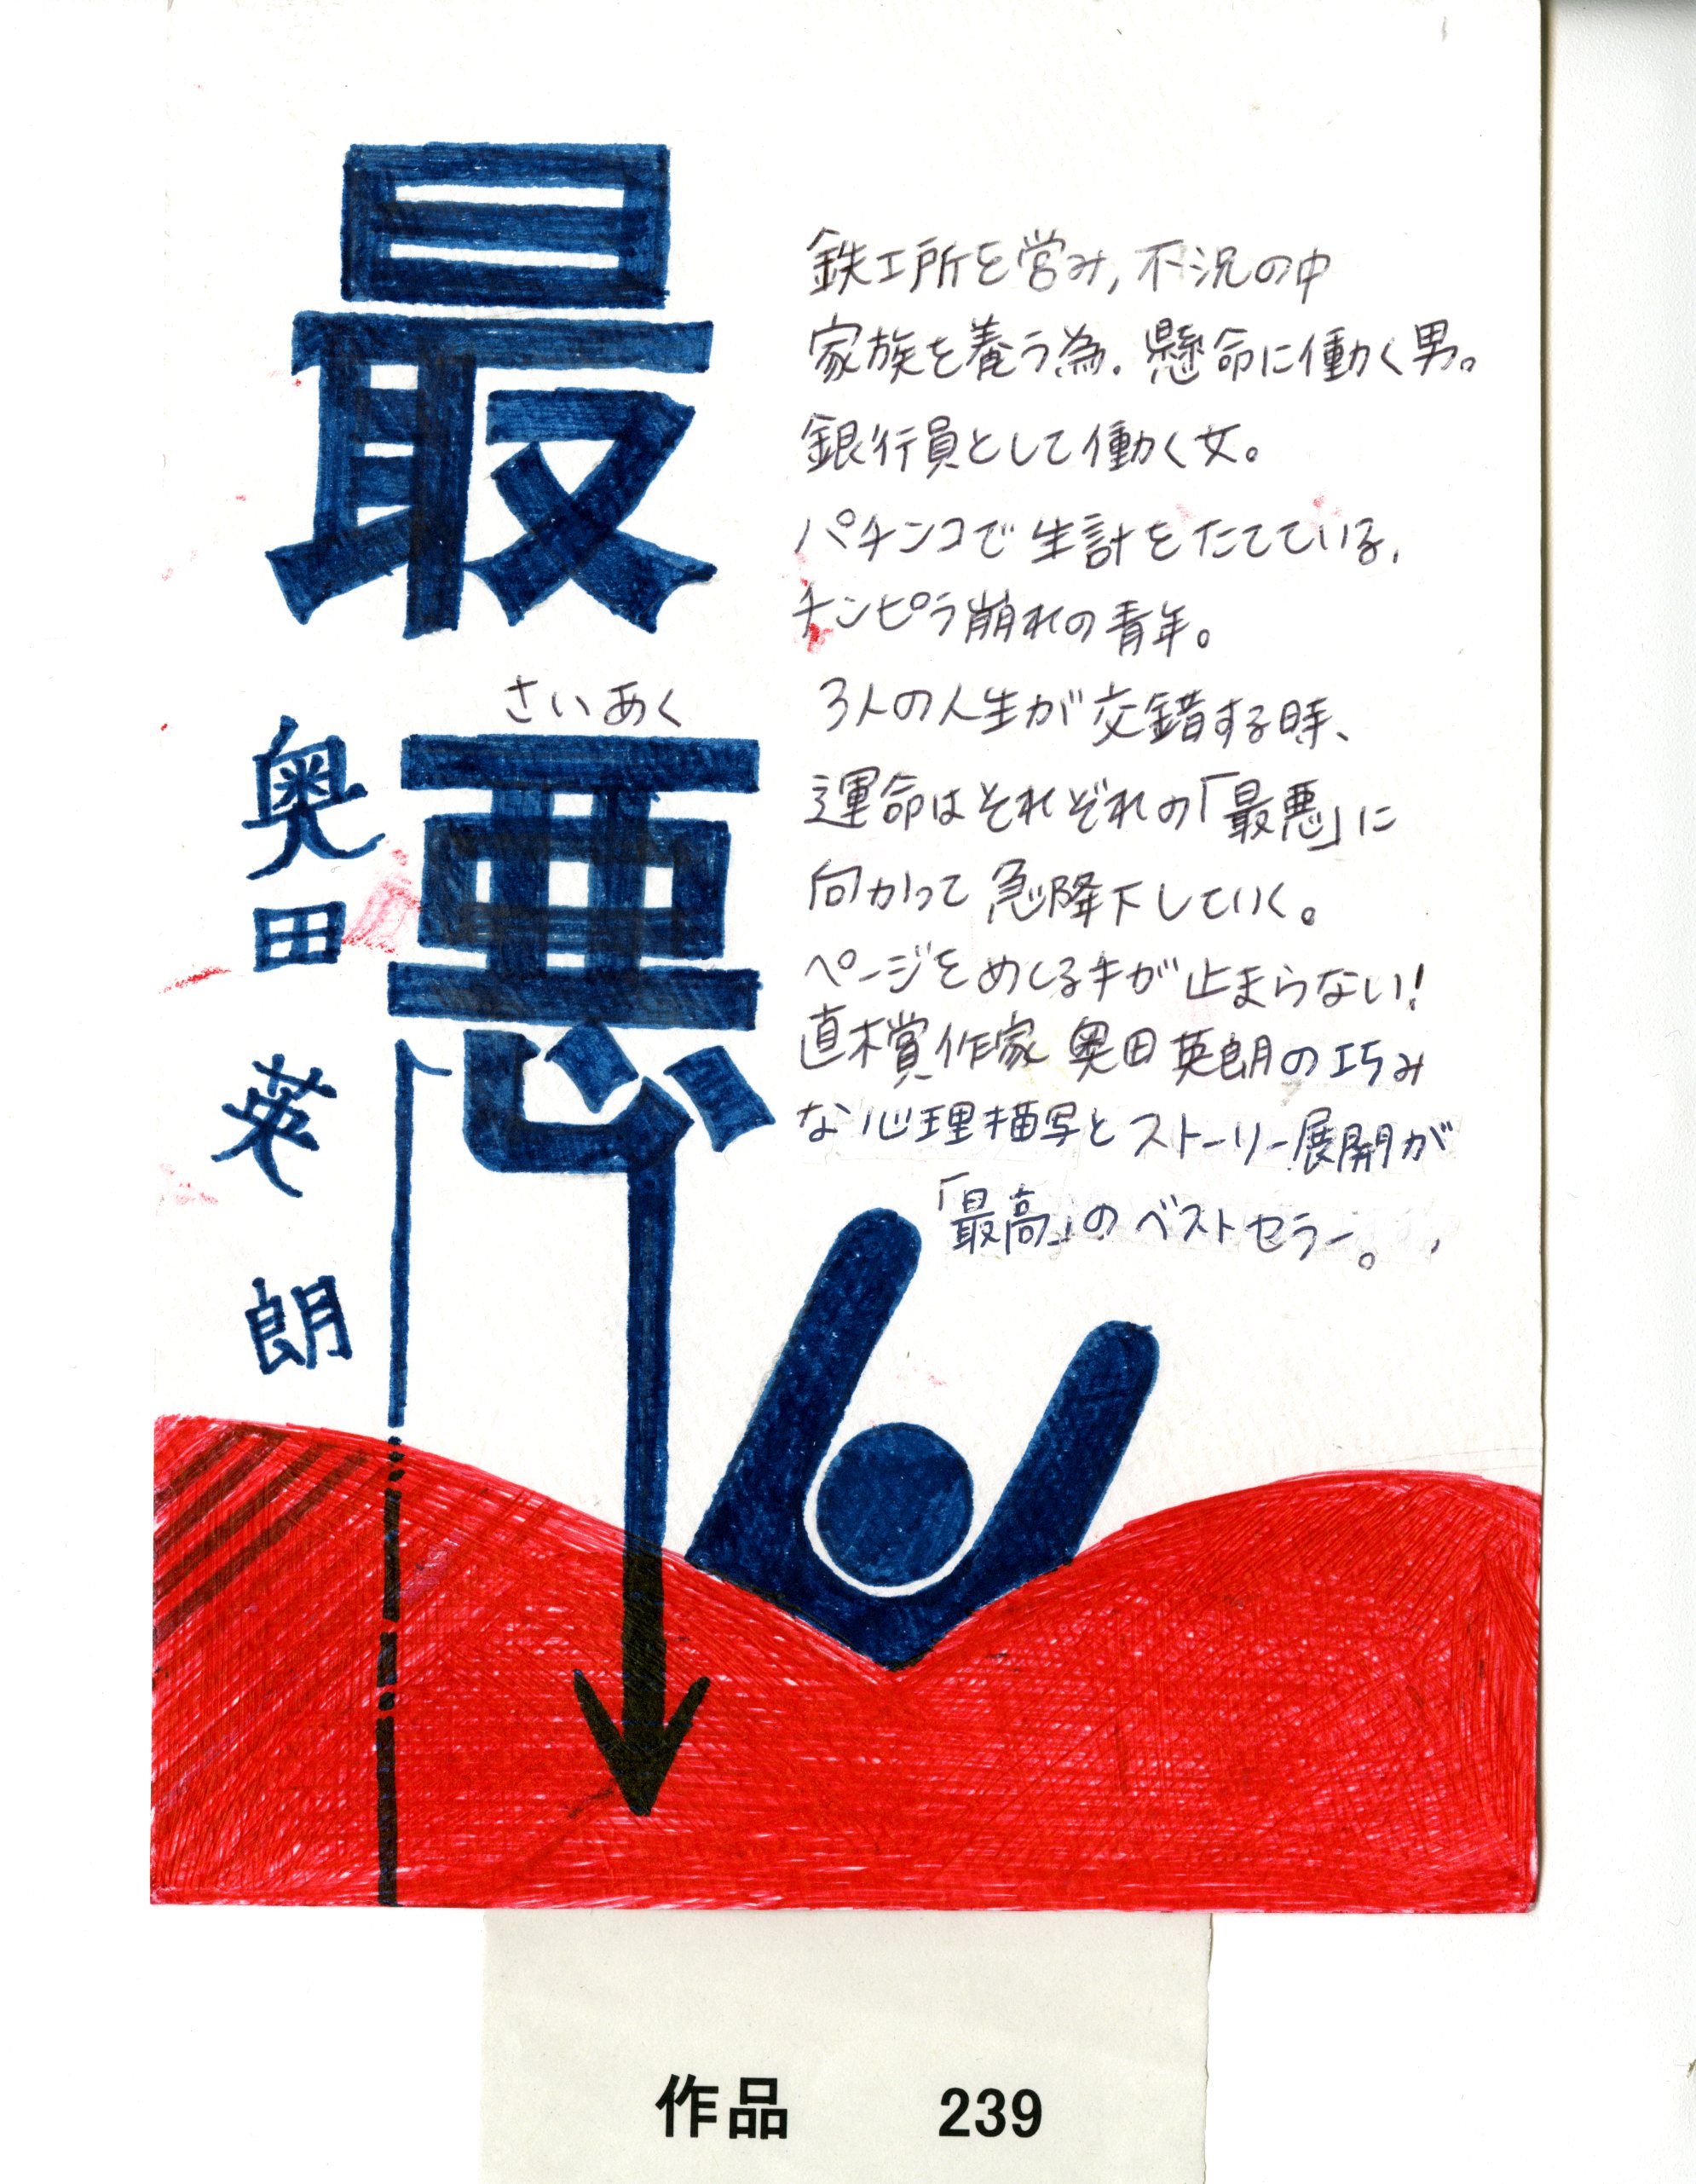 最悪
さいあく
奥田英朗
鉄工所を営み,不況の中
家族を養う為.懸命に働く男。
銀行員として働く女。
パチンコで生計をたてている,
チンピラ崩れの青年。
3人の人生が交錯する時、
運命はそれぞれの「最悪」に
向かって急降下していく。
ページをめくる手が止まらない!
直木賞作家 奥田英朗の巧み
な心理描写とストーリー展開が
「最高」のベストセラー。
作品 239